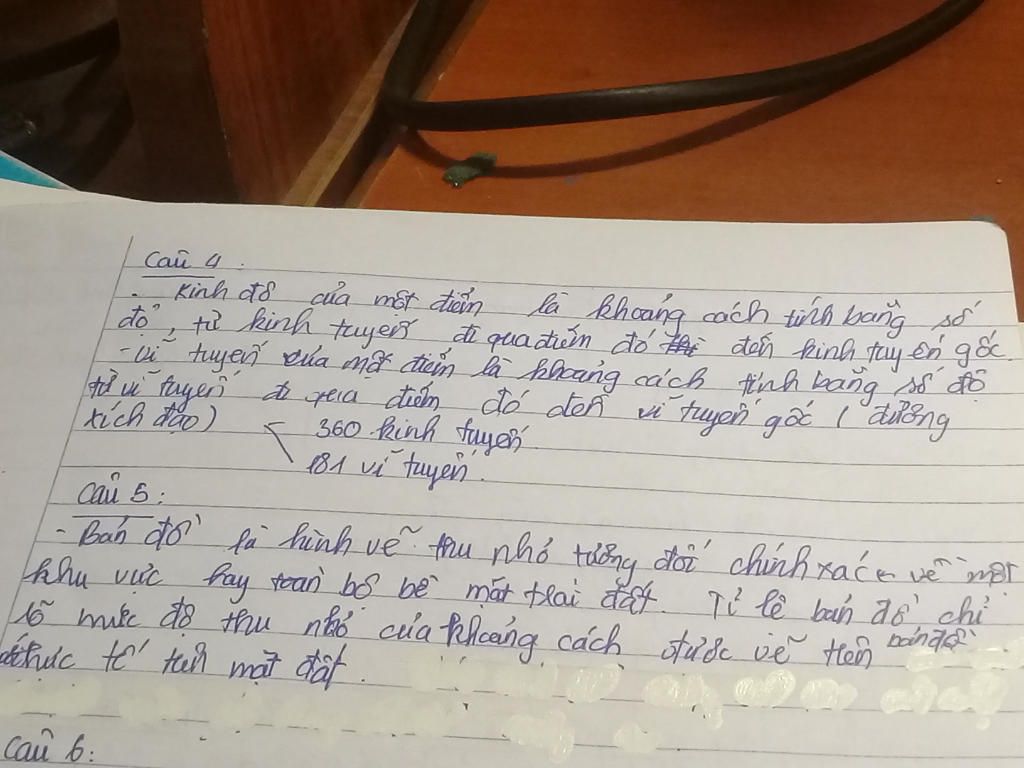 Câu 4:
- Kinh độ của một điểm là khoảng cách tính bằng số
độ, từ kinh tuyến đi qua điểm đó đến kinh tuyến gốc.
- vĩ tuyến của một điểm là khoảng cách tính bằng số độ
từ vĩ tuyến đi qua điểm đó đến vĩ tuyến gốc ( đường
xích đạo) 360 kinh tuyến
181 vĩ tuyến.
Câu 5:
- Bản đồ là hình vẽ thu nhỏ tương đối chính xác về một
khu vực hay toàn bộ bề mặt trái đất. Tỉ lệ bản đồ chỉ
rõ mức độ thu nhỏ của khoảng cách được vẽ trên bản đồ
thực tế trên mặt đất.
Câu 6: